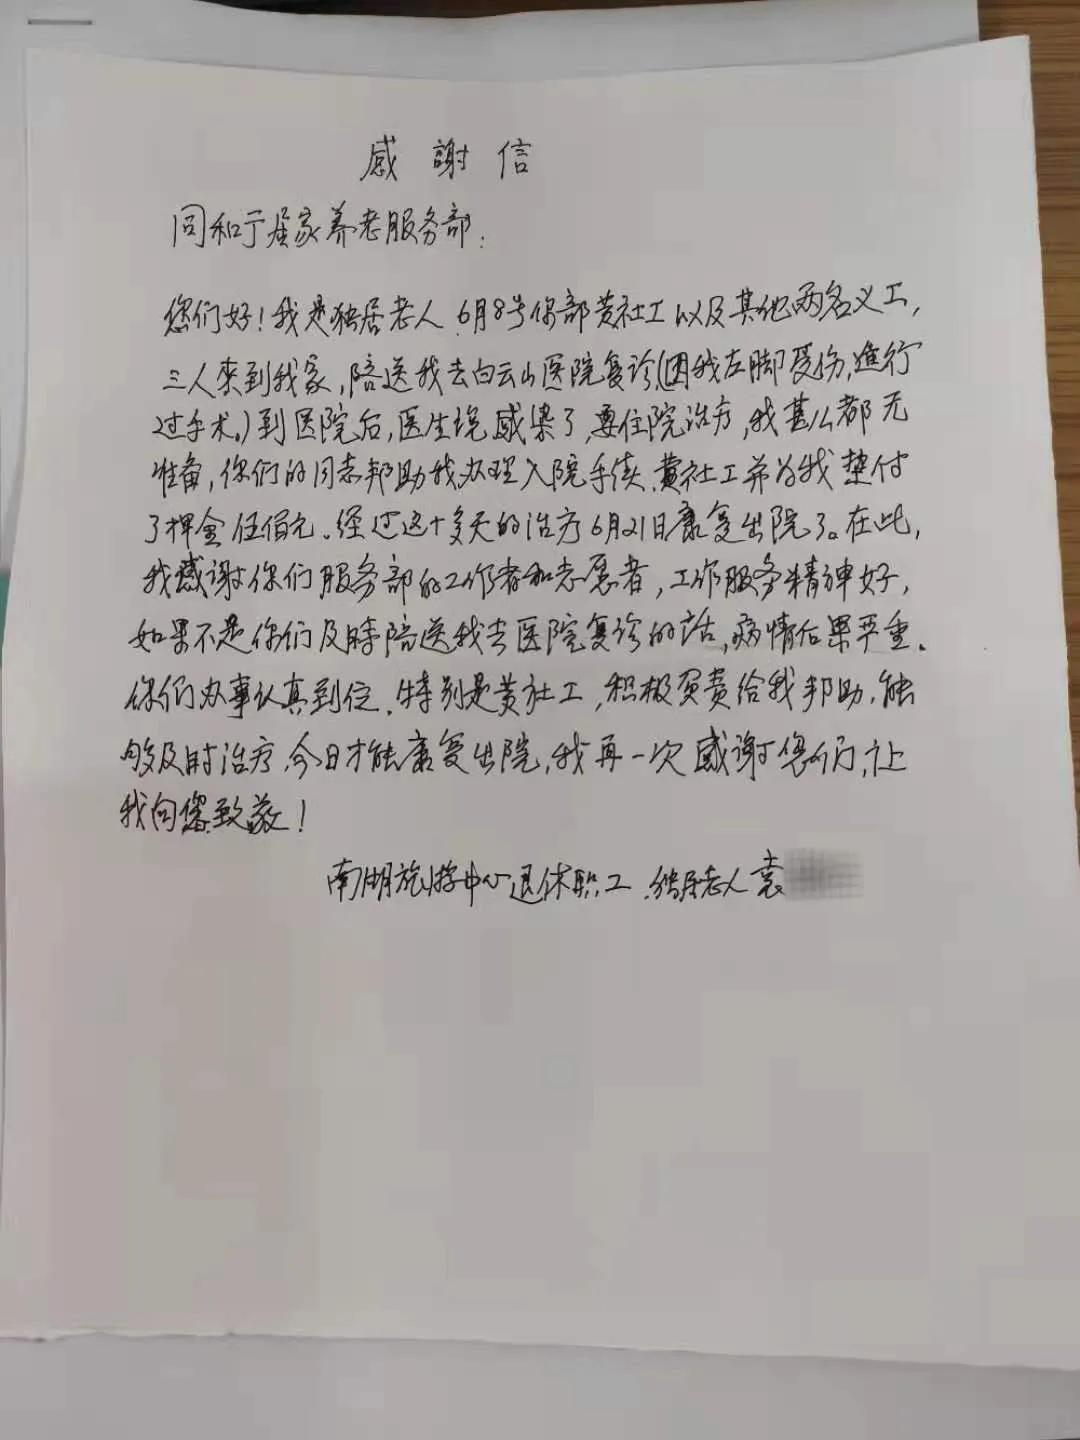 感謝信
同和亍居家养老服务部:
您们好!我是独居老人.6月8号你部黄社工以及其他两名义工,
三人來到我家,陪送我去白云山医院复诊(因我左脚受伤,進行
过手术。)到医院后,医生说感染了,要住院治疗,我甚么都无
准备,你们的同志邦助我办理入院手续.黄社工并为我垫付
了押金伍佰元。经过这十多天的治疗6月21日康复出院了。在此,
我感谢你们服务部的工作者和志愿者,工作服务精神好,
如果不是你们及時陪送我去医院复诊的话,病情后果严重。
你们办事认真到位.特别是黄社工,积极负责给我邦助.能
够及时治疗.今日才能康复出院,我再一次感谢您们,让
我向您致敬!
南湖旅游中心退休职工.独居老人袁